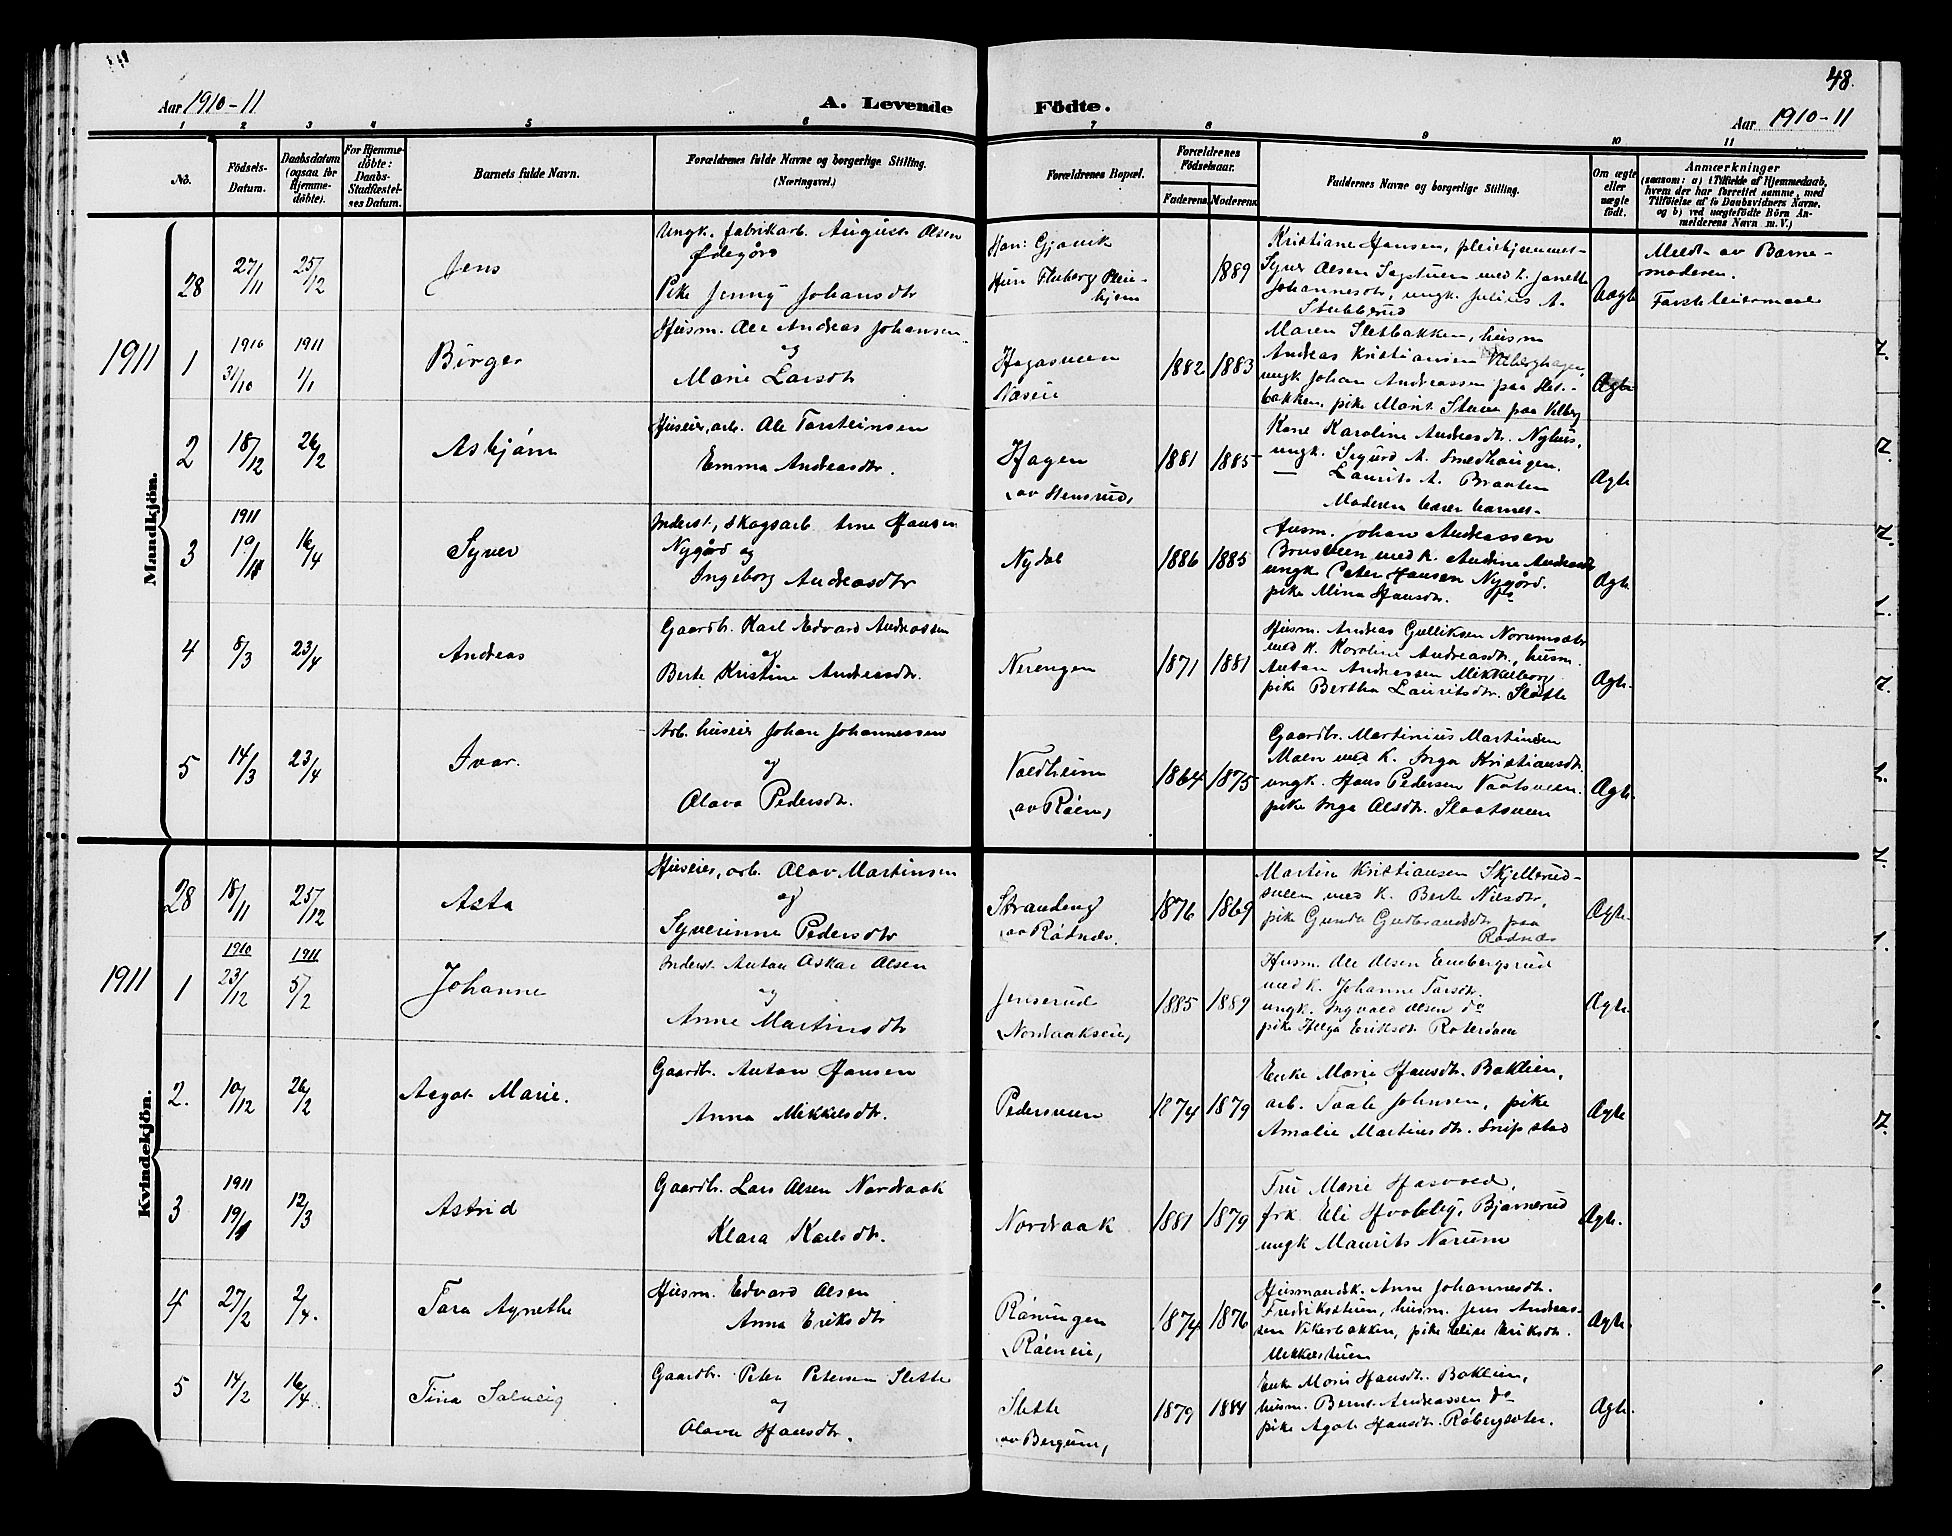 48.
Aar 1910-11
A. Levende Födte.
Aar 1910-11
1 2 3 4 5 6 7 8 9 10 11
No.
Födsels-Datum.
Daabsdatum (ogsaa for Hjemmedöbte).
For Hjemmedöbte: Daabs-Stadfæstelses Datum.
Barnets fulde Navn.
Forældrenes fulde Navne og borgerlige Stilling. (Næringsvei.)
Forældrenes Bopæl.
Forældrenes Födselsaar.
Faderens. Moderens.
Faddernes Navne og borgerlige Stilling.
Om ægte eller uægte födt.
Anmærkninger
(saasom: a) i Tilfælde af Hjemmedaab, hvem der har forrettet samme, med Tilföielse af to Daabsvidners Navne. og b) ved uægtefödte Börn Anmelderens Navn m. V.)
Mandkjön.
28 27/11 25/12 Jens
Ungk. fabrikarb. August Olsen
Ødegård
Pike Jenny Johansdtr
Han: Gjøvik
Hun Fluberg Pleiehjem
1889
Kristiane Hansen, pleiehjemmet-
Syver Olsen Sagstuen med k. Janette
Johannesdtr, ungk. Julius A.
Stubberud
Uægte
Meldt av Barnemoderen.
Første leiermaal
1911
1 1910 31/10 1911 1/1 Birger
Husm. Ole Andreas Johansen
og
Marie Larsdtr
Hagasveen
Næseie
1882 1883
Maren Sletbakken, husm
Andreas Kristiansen Velberghagen,
ungk Johan Andreassen paa Slet-
bakken, pike Marit Stuve paa Velberg
Ægte
2 18/12 26/2 Asbjørn
Huseier, arb. Ole Torsteinsen
Emma Andreasdtr.
Hagen
(av Stensrud)
1881 1885
Kone Karoline Andreasdtr. Nyhus,
ungk. Sigurd A. Smedhaugen.
— Laurits A. Braaten
Moderen bærer barnet-
Ægte
3 1911 19/1 16/4 Syver
Inderst, skogsarb Arne Hansen
Nygård og
Ingeborg Andreasdtr
Nydal
1886 1885
Husm. Johan Andreassen
Brusveen med k. Andine Andreasdtr
ungk Peter Hansen Nygård.
pike Mina Hansdtr. do
Ægte.
4 8/3 23/4 Andreas
Gaardbr. Karl Edvard Andreassen
og
Berte Kristine Andreasdtr.
Nerengen
1871 1881
Husm. Andreas Gulliksen Norumsætr
med k. Karoline Andreasdtr., husm.
Anton Andreassen Mikkelborg,
pike Bertha Lauritsdtr. Slaatte
Ægte.
5 14/3 23/4 Ivar.
Arb. huseier Johan Johannessen
og
Olava Pedersdtr.
Voldheim
(av Røien)
1864 1875
Gaardbr. Martinius Martinsen
Moen med k. Inga Kristiansdtr.
ungk. Hans Pedersen
pike Inga Olsdtr. Slaatsveen
Ægte.
Kvindekjön.
28 18/11 25/12 Asta
Huseier, arb. Olav Martinsen
og
Syverinne Pedersdtr
Strandeng
av Rødnæs.
1876 1869
Martin Kristiansen Skjellerud-
sveen med k. Berte Nilsdtr,
pike Gunda Gudbrandsdtr paa
Rødnæs
Ægte.
1911
1 1910 23/12 1911 5/2 Johanne
Inderst. Anton Oskar Olsen
og
Anne Martinsdtr
Jenserud
(Nordraakseie)
1885 1889
Husm. Ole Olsen Embergsrud
med k. Johanne Torsdtr.
ungk. Ingvald Olsen do
pike Helga Eriksdtr
Ægte.
2. 10/12 26/2 Aagot Marie.
Gaardbr. Anton Hansen
Anna Mikkelsdtr.
Pedersveen
1874 1879
Enke Marie Hansdtr. Baklien,
arb. Johnsen, pike
Amalie Martinsdtr. Snipstad
Ægte
3 1911 19/1 12/3 Astrid
Gaardbr. Lars Olsen Nordraak
Klara Karlsdtr.
Nordraak
1881 1879
Fru Marie Hasvold,
frk. Eli Hvalby, Bjørnerud
ungk Maurits Norum
Ægte.
4 27/2 2/4. Tora Agnethe
Husm. Edvard Olsen
Anna Eriksdtr
Røningen
(Røieneie)
1874 1876
Husmandsk. Anne Johannesdtr.
Fredrikstuen, husm. Jens Andreas-
sen Vikerbakken, pike Eriksdtr.
Mikkelstuen
Ægte.
5 14/2 16/4. Tina Solveig
Gaardbr. Peter Petersen Slette
og
Olava Hansdtr.
Slette
av Bergum,
1879 1884
Enke Marie Hansdtr. Baklien,
husm. Bernt Andreassen do
pike Agate Hansdtr. Røbergsæter.
Ægte.